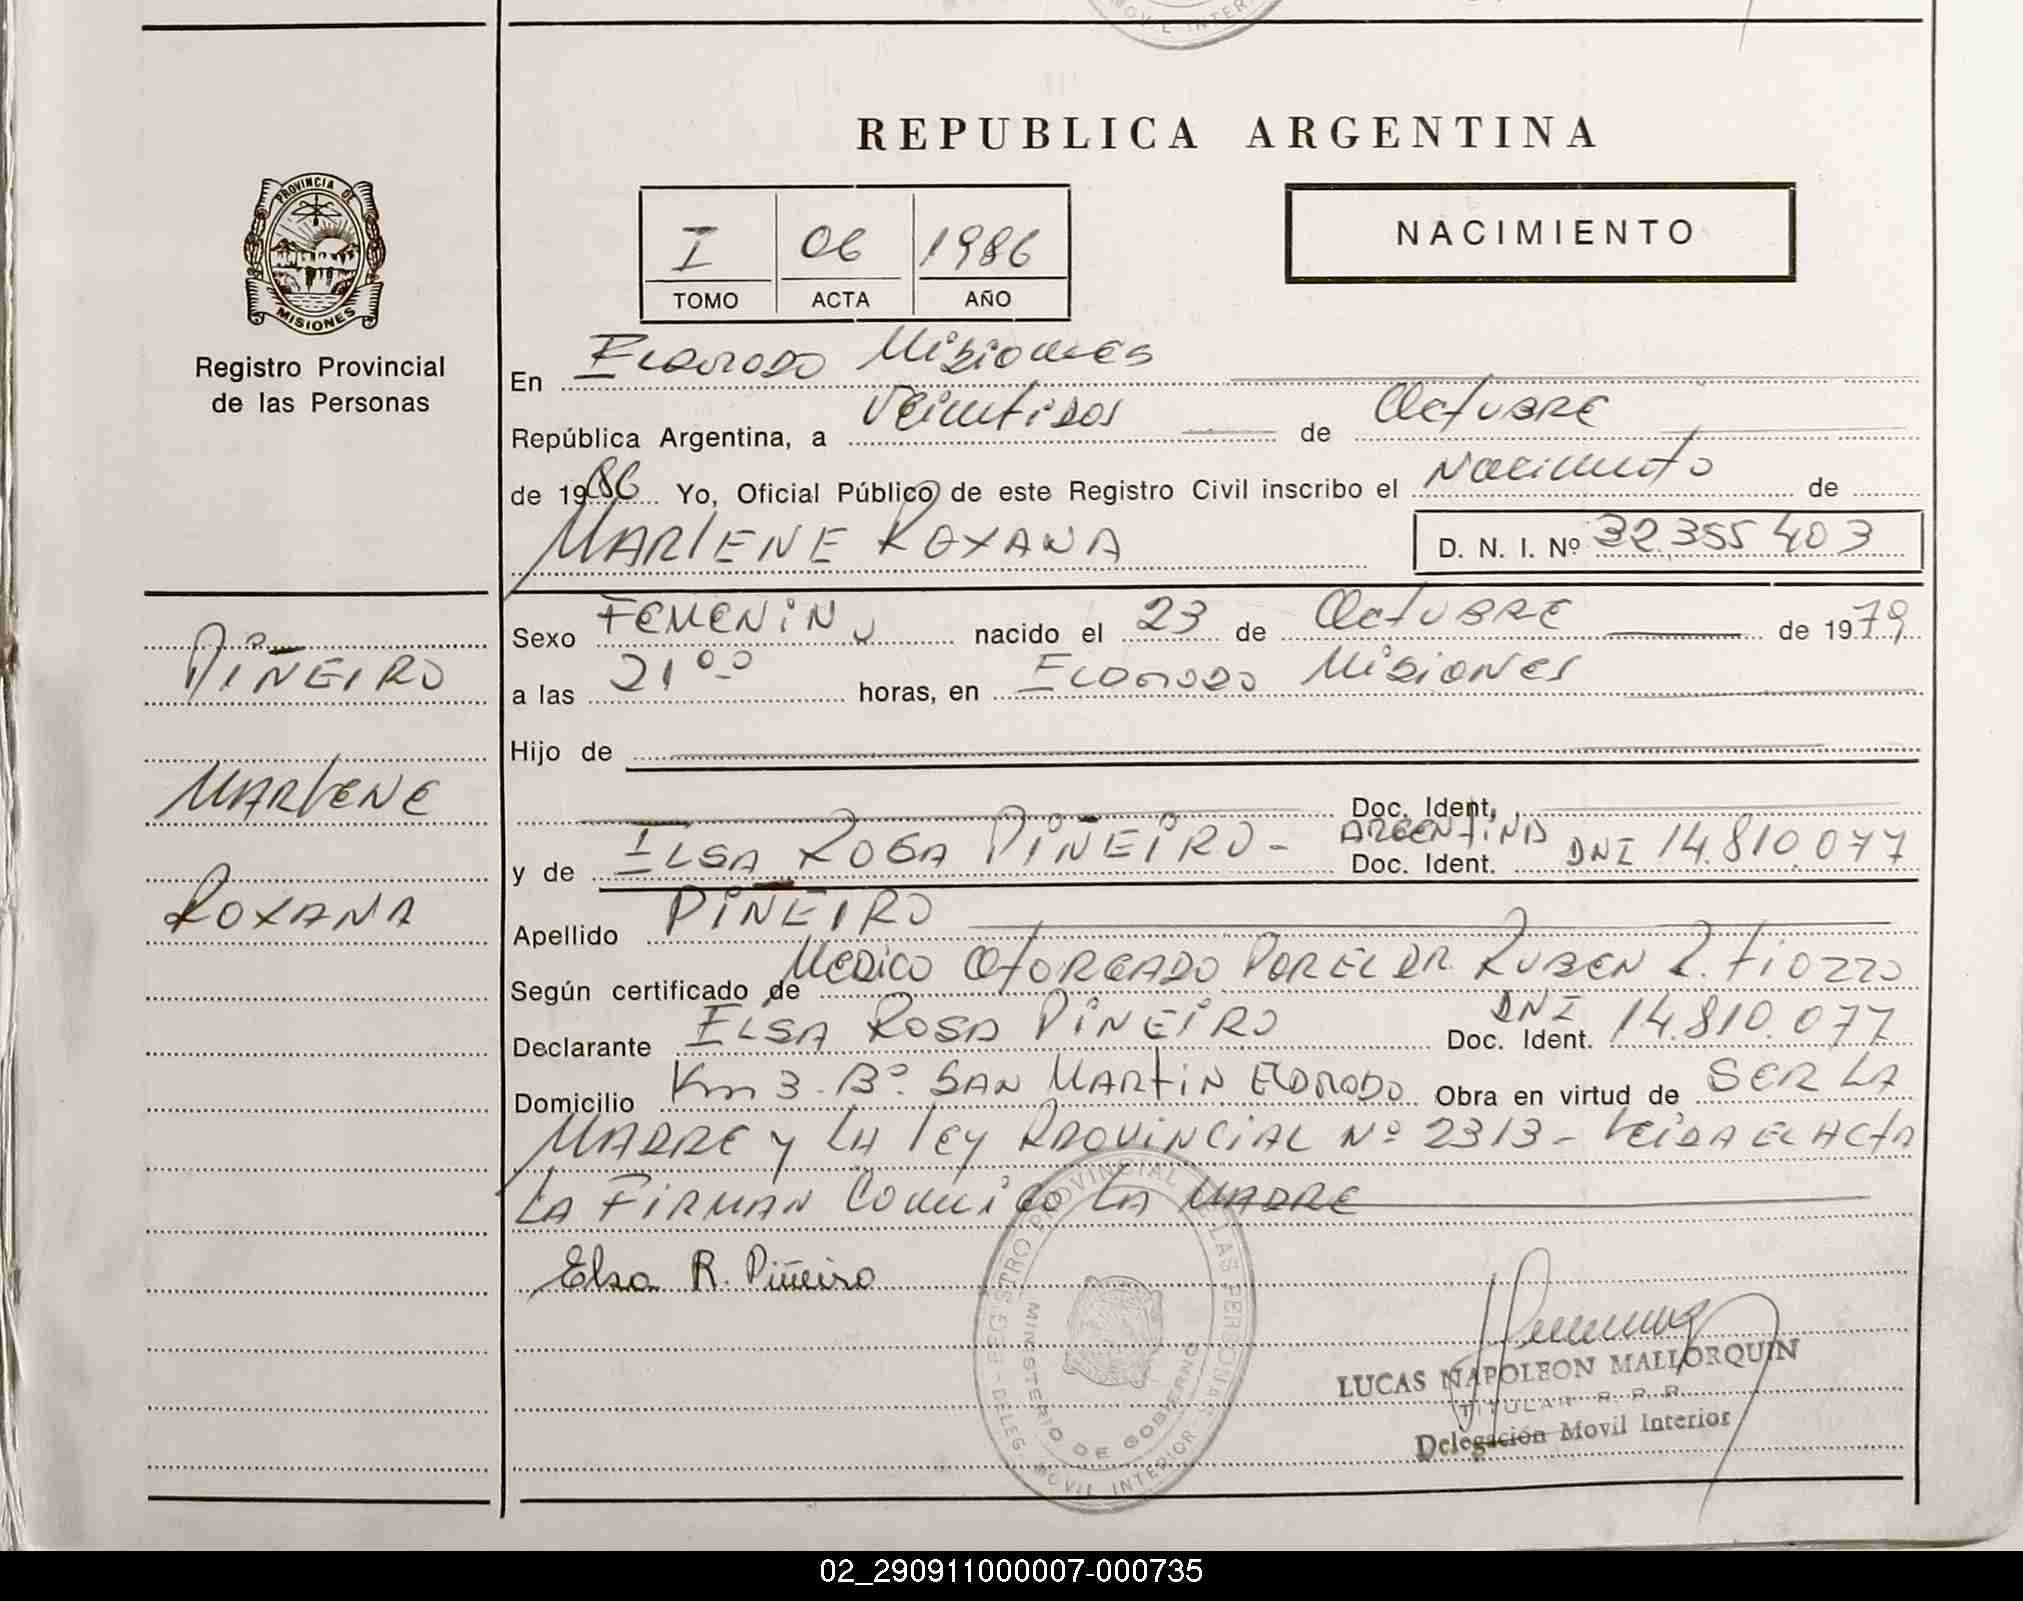 MOVIL INTER
REPUBLICA ARGENTINA
PROVINCIA DE
MISIONES
Registro Provincial
de las Personas
I 06 1986
TOMO ACTA AÑO
NACIMIENTO
En Eldorado Misiones
República Argentina, a Veintidos de Octubre
de 1986 Yo, Oficial Público de este Registro Civil inscribo el Nacimiento de
MARLENE ROXANA D. N. I. Nº 32.355.403
PIÑEIRO
MARLENE
ROXANA
Sexo FEMENINO nacido el 23 de Octubre de 1979
a las 21°° horas, en Eldorado Misiones
Hijo de
Doc. Ident.
y de ELSA ROSA PIÑEIRO - ARGENTINA Doc. Ident. DNI 14.810.077
Apellido PIÑEIRO
Según certificado de MEDICO OTORGADO POR EL DR. RUBEN R. FIOZZO
Declarante ELSA ROSA PIÑEIRO Doc. Ident. DNI 14.810.077
Domicilio Km 3 - Bº. SAN MARTIN ELDORADO Obra en virtud de SER LA
MADRE Y LA LEY PROVINCIAL Nº 2313 - LEIDA EL ACTA
LA FIRMAN CONMIGO LA MADRE
Elsa R. Piñeiro
REGISTRO PROVINCIAL DE LAS PERSONAS
MINISTERIO DE GOBIERNO
DELEG. MOVIL INTERIOR
LUCAS NAPOLEON MALLORQUIN
TITULAR R. R. P.
Delegación Movil Interior
02_290911000007-000735